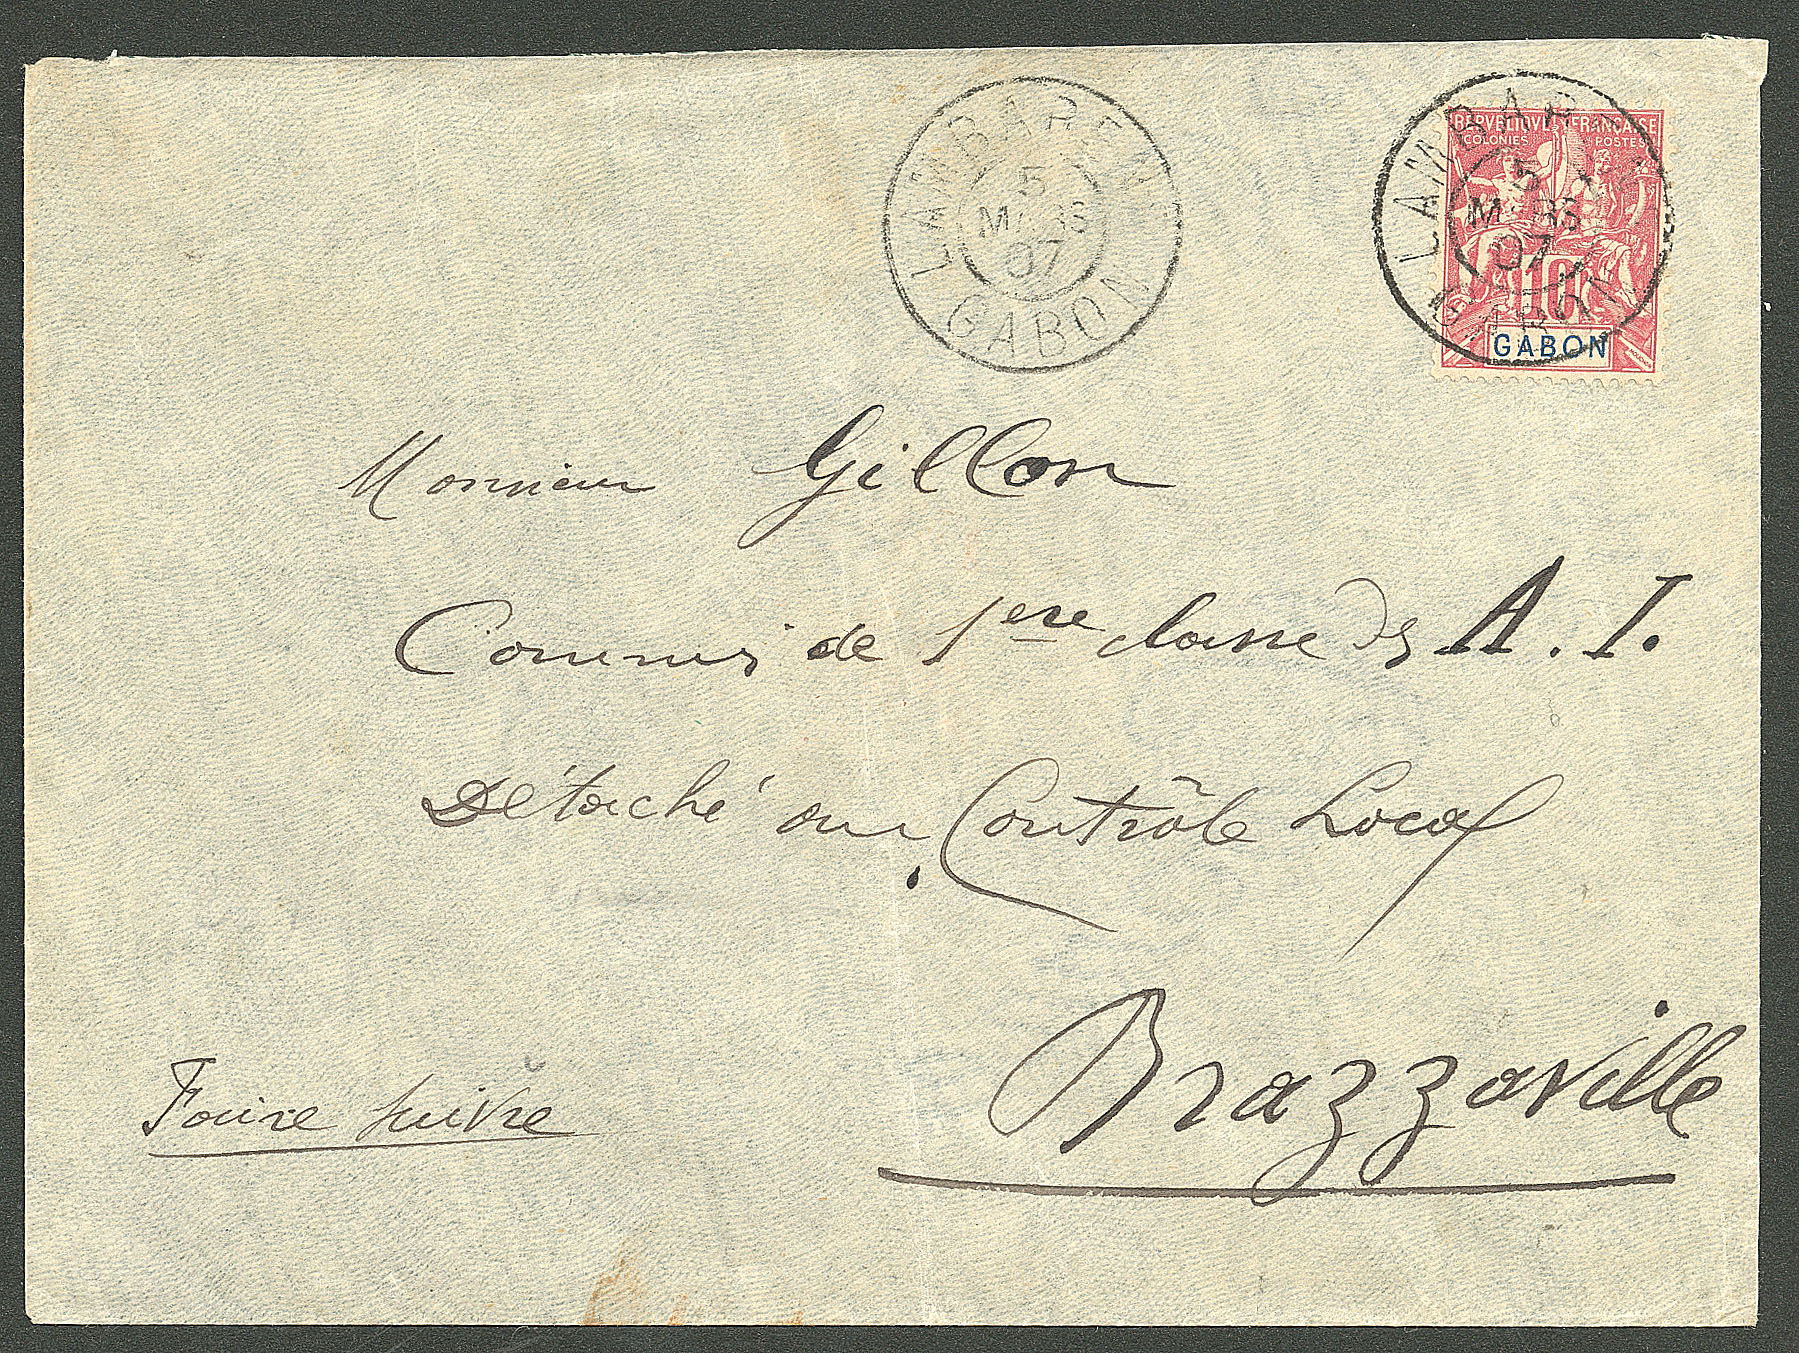 LAMBARENE
5
MARS
07
GABON
LAMBAR
5
MARS
07
GABON
REPUBLIQUE FRANCAISE
COLONIES POSTES
10
GABON
MOUCHON
Monsieur Gillon
Commis de 1ere classe des A. I.
Détaché au Contrôle Local
Brazzaville
Faire suivre